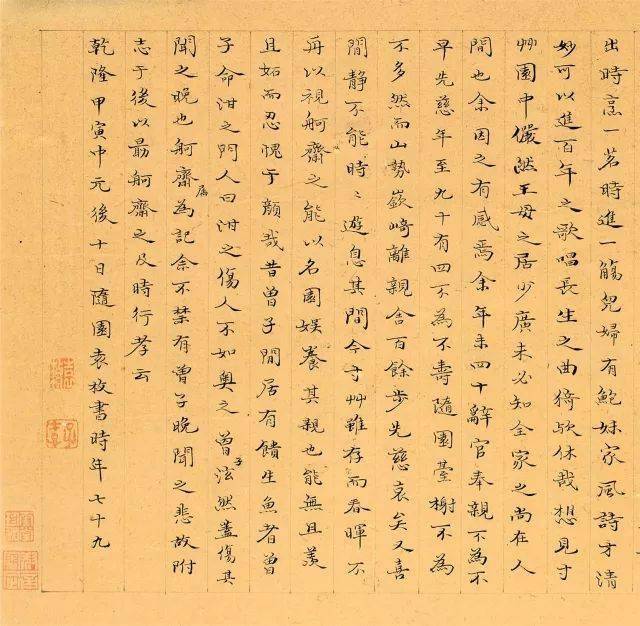 出時烹一茗時進一觴兒婦有鮑妹家風詩才清
妙可以進百年之歌唱長生之曲猗歟休哉想見寸
艸園中儼然王母之居少廣未必知全家之尚在人
間也余因之有感焉余年未四十辭官奉親不為不
早先慈年至九十有四不為不壽隨園臺榭不為
不多然而山勢嶔崎離親舍百餘步先慈衰矣又喜
閒靜不能時〻遊息其間今寸艸雖存而春暉不
再以視舸齋之能以名園娛養其親也能無且羨
且妬而忍愧于顏哉昔曾子閒居有饋生魚者曾
子命泔之門人曰泔之傷人不如奧之曾子泫然蓋傷其
聞之晚也舸齋屬為記余不禁有曾子晚聞之悲故附
志于後以勗舸齋之及時行孝云
乾隆甲寅中元後十日隨園袁枚書時年七十九